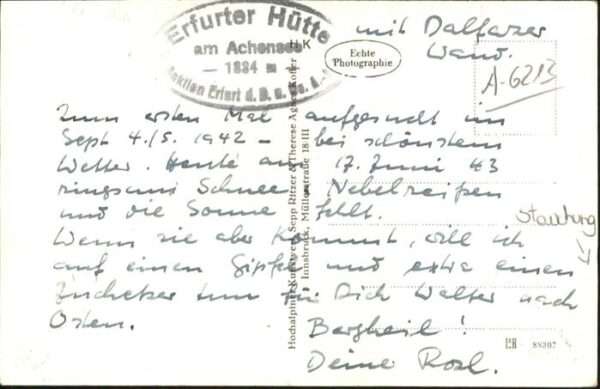 Erfurter Hütte
am Achensee
— 1834 m —
Sektion Erfurt d. D. u.
mit Dalfazer
Wand.
Echte
Photographie
A-6213
Zum ersten Mal aufgesucht im
Sept 4./5. 1942 – bei schönstem
Wetter. Heute am 17. Juni 43
ringsum Schnee, Nebelreißen
und die Sonne fehlt.
Wenn sie aber kommt, will ich
auf einen Gipfel und extra einen
Juchetzer tun für Dich Walter nach
Osten. Bergheil!
Deine Rosl.
Hochalpiner Kunstverl. Sepp Ritzer & Therese Kofler
Innsbruck, Müllerstraße 18/III
88307